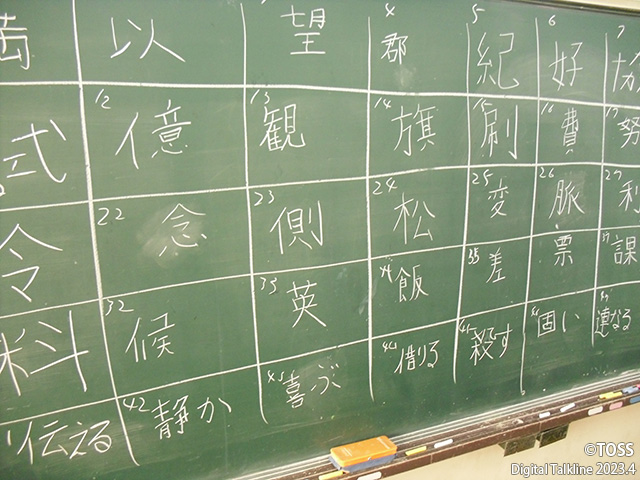 以 望 4 郡 5 紀 6 好 7 協
式 12 億 13 観 14 旗 15 刷 16 費 努
令 22 念 23 側 24 松 25 変 26 脈 27 利
料 32 候 33 英 34 飯 35 差 票 37 課
伝える 42 静か 43 喜ぶ 44 借りる 45 殺す 固い 連なる
©TOSS
Digital Talkline 2023.4